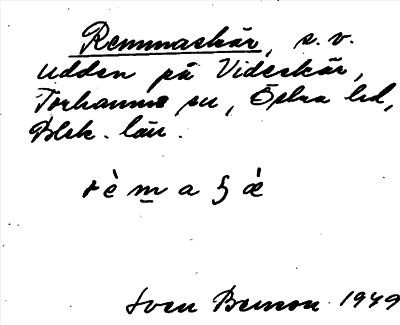 Remmaskär, s.v.
udden på Videskär,
Torhamns sn, Östra hd,
Blek. län.
r è m a ʂ æ
Sven Benson 1949